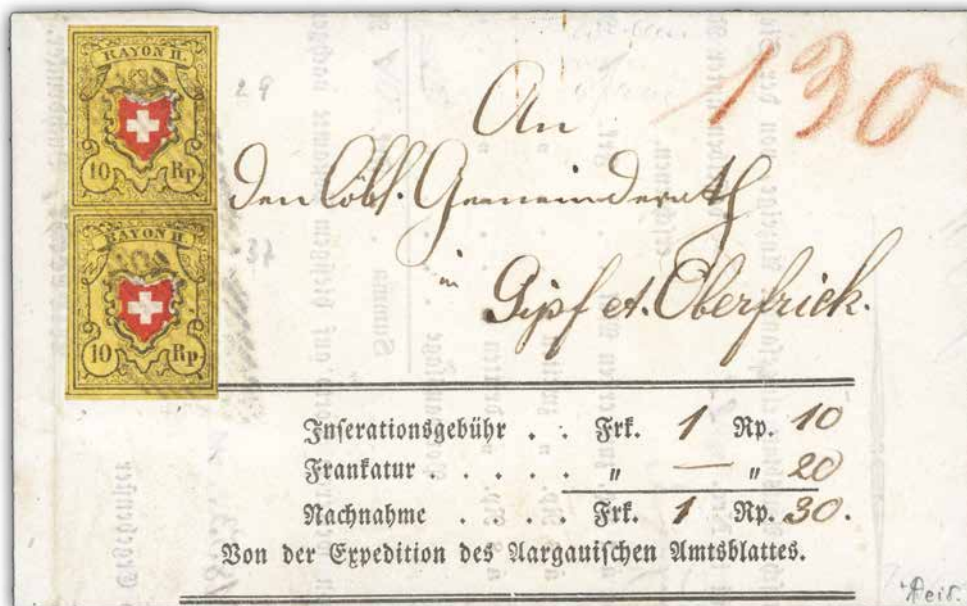 RAYON II.
10 Rp.
RAYON II.
10 Rp.
29
37
130
An
den löbl. Gemeinderath
in
Gipf et. Oberfrick.
Inserationsgebühr . . Frk. 1 Rp. 10
Frankatur . . . . . „ — „ 20
Nachnahme . . . . Frk. 1 Rp. 30.
Von der Expedition des Aargauischen Amtsblattes.